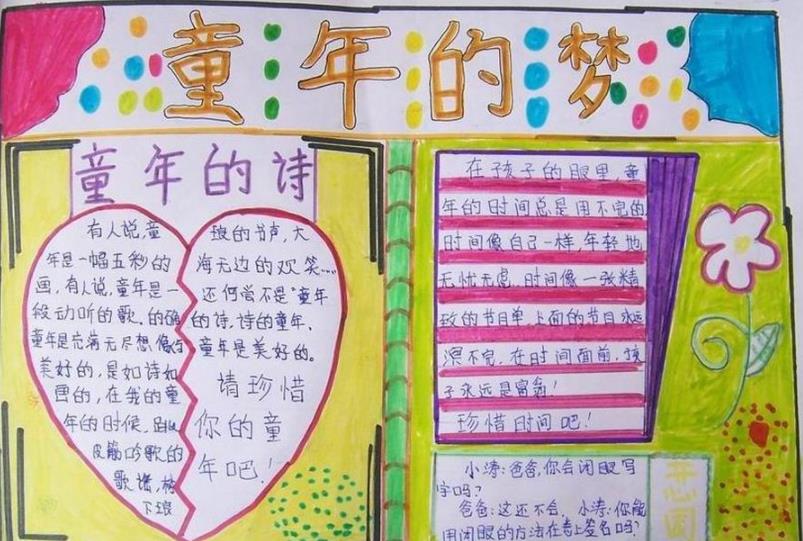 童年的梦
童年的诗
有人说,童
年是一幅五彩的
画,有人说,童年是一
段动听的歌.的确
童年是充满无尽想像与
美好的,是如诗如
画的,在我的童
年的时候,跳
皮筋吟歌的
歌谣,树
下琅
琅的书声,大
海无边的欢笑……
还何尝不是"童年
的诗,诗的童年.
童年是美好的。
请珍惜
你的童
年吧!
在孩子的眼里,童
年的时间总是用不完的
时间像自己一样,年轻地
无忧无虑.时间像一张精
致的节目单.上面的节目永远
演不完.在时间面前,孩
子永远是富翁!
珍惜时间吧!
小涛:爸爸,你会闭眼写
字吗?
爸爸:这还不会.小涛:你能
用闭眼的方法在卷上签名吗?
开心园